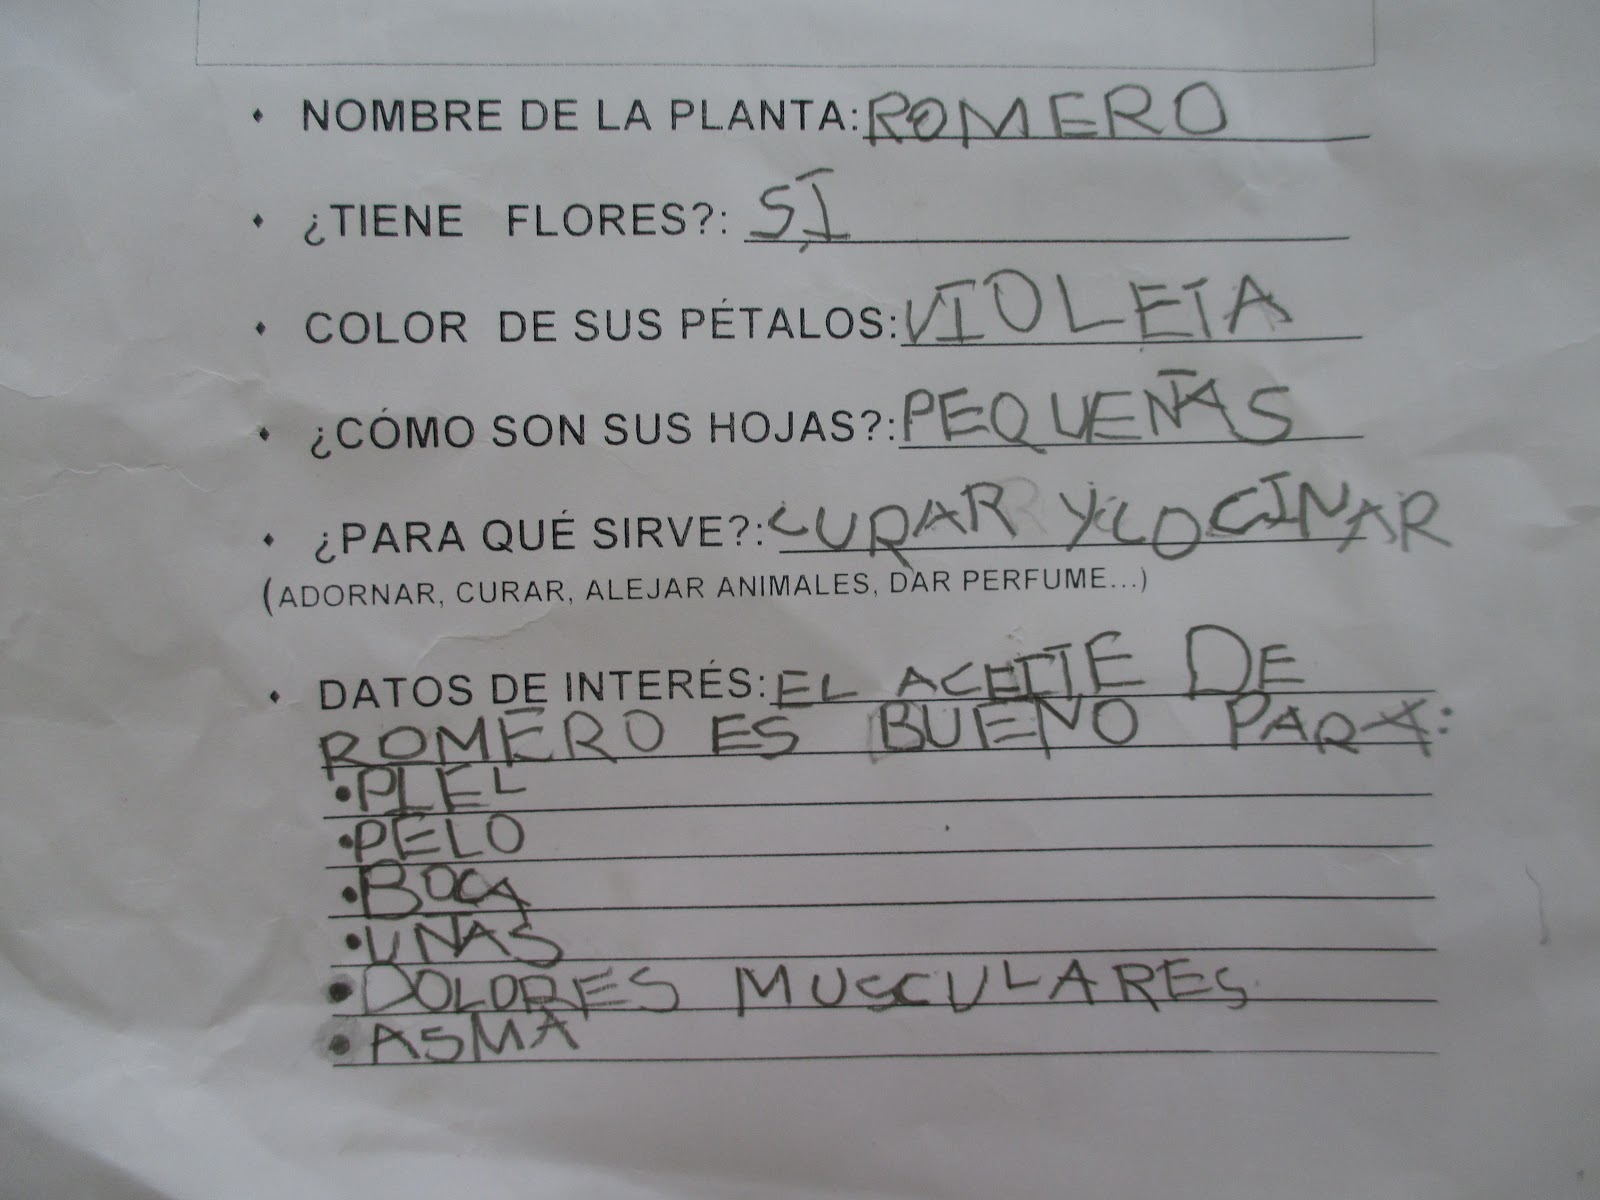 • NOMBRE DE LA PLANTA: ROMERO
• ¿TIENE FLORES?: SI
• COLOR DE SUS PÉTALOS: VIOLETA
• ¿CÓMO SON SUS HOJAS?: PEQUEÑAS
• ¿PARA QUÉ SIRVE?: CURAR Y COCINAR
(ADORNAR, CURAR, ALEJAR ANIMALES, DAR PERFUME...)
• DATOS DE INTERÉS: EL ACEITE DE
ROMERO ES BUENO PARA:
• PIEL
• PELO
• BOCA
• UÑAS
• DOLORES MUSCULARES
• ASMA